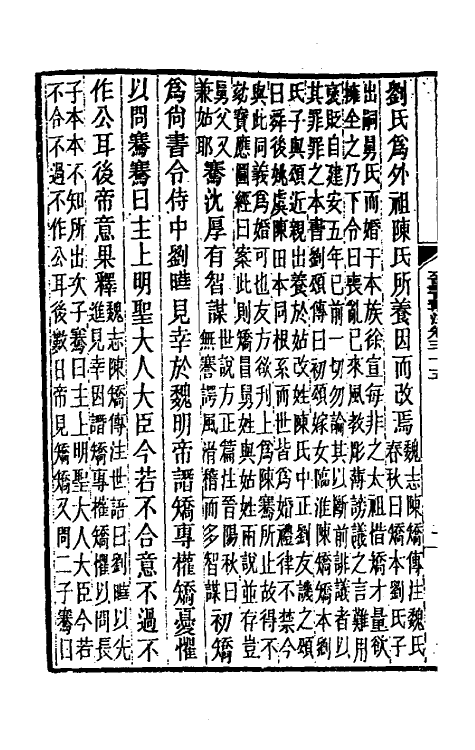 劉氏爲外祖陳氏所養因而改焉魏志陳矯傳注魏氏
春秋曰矯本劉氏子
出嗣舅氏而婚于本族徐宣每非之太祖惜矯才量欲
擁全之乃下令曰喪亂已來風教彫薄謗議之言難用
褒貶自建安五年已前一切勿論其以斷前誹議者以
其罪罪之本書劉頌傳曰初頌嫁女臨淮陳矯矯本劉
氏子與頌近親出養於姑改姓陳氏中正劉友譏之頌
曰舜後姚虞陳田本同根系而世皆爲婚禮律不禁今
與此同義爲婚可也友方欲列上爲陳騫所止故得不
劾寶應圖經曰案此則矯昌舅姓與姑姓兩說並存豈
舅父又
兼姑耶
騫沈厚有智謀
世說方正篇注晉陽秋曰
無謇諤風滑稽而多智謀
初矯
爲尚書令侍中劉曄見幸於魏明帝譖矯專權矯憂懼
以問騫騫曰主上明聖大人大臣今若不合意不過不
作公耳後帝意果釋
魏志陳矯傳注世語曰劉曄以先
進見幸因譖矯專權矯懼以問長
子本本不知所出次子騫曰主上明聖大人大臣今若
不合不過不作公耳後數日帝見矯矯又問二子騫曰
晉書斠注卷三十五